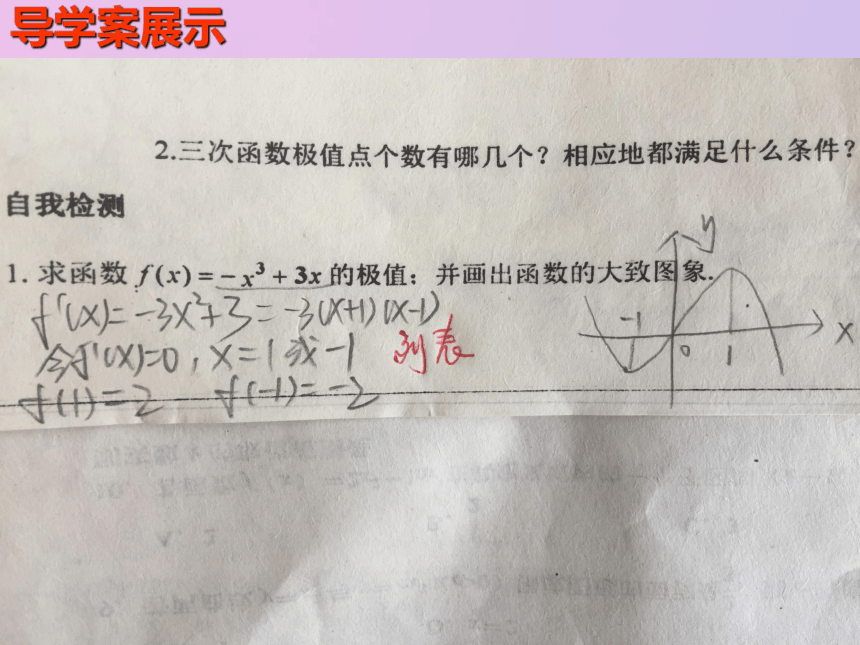 导学案展示
2.三次函数极值点个数有哪几个？相应地都满足什么条件？
自我检测
1. 求函数 f(x) = -x³ + 3x 的极值；并画出函数的大致图象.
f'(x)= -3x²+3 = -3(x+1)(x-1)
令f'(x)=0，x=1或-1 列表
f(1)=2 f(-1)=-2
y
-1 0 1 x